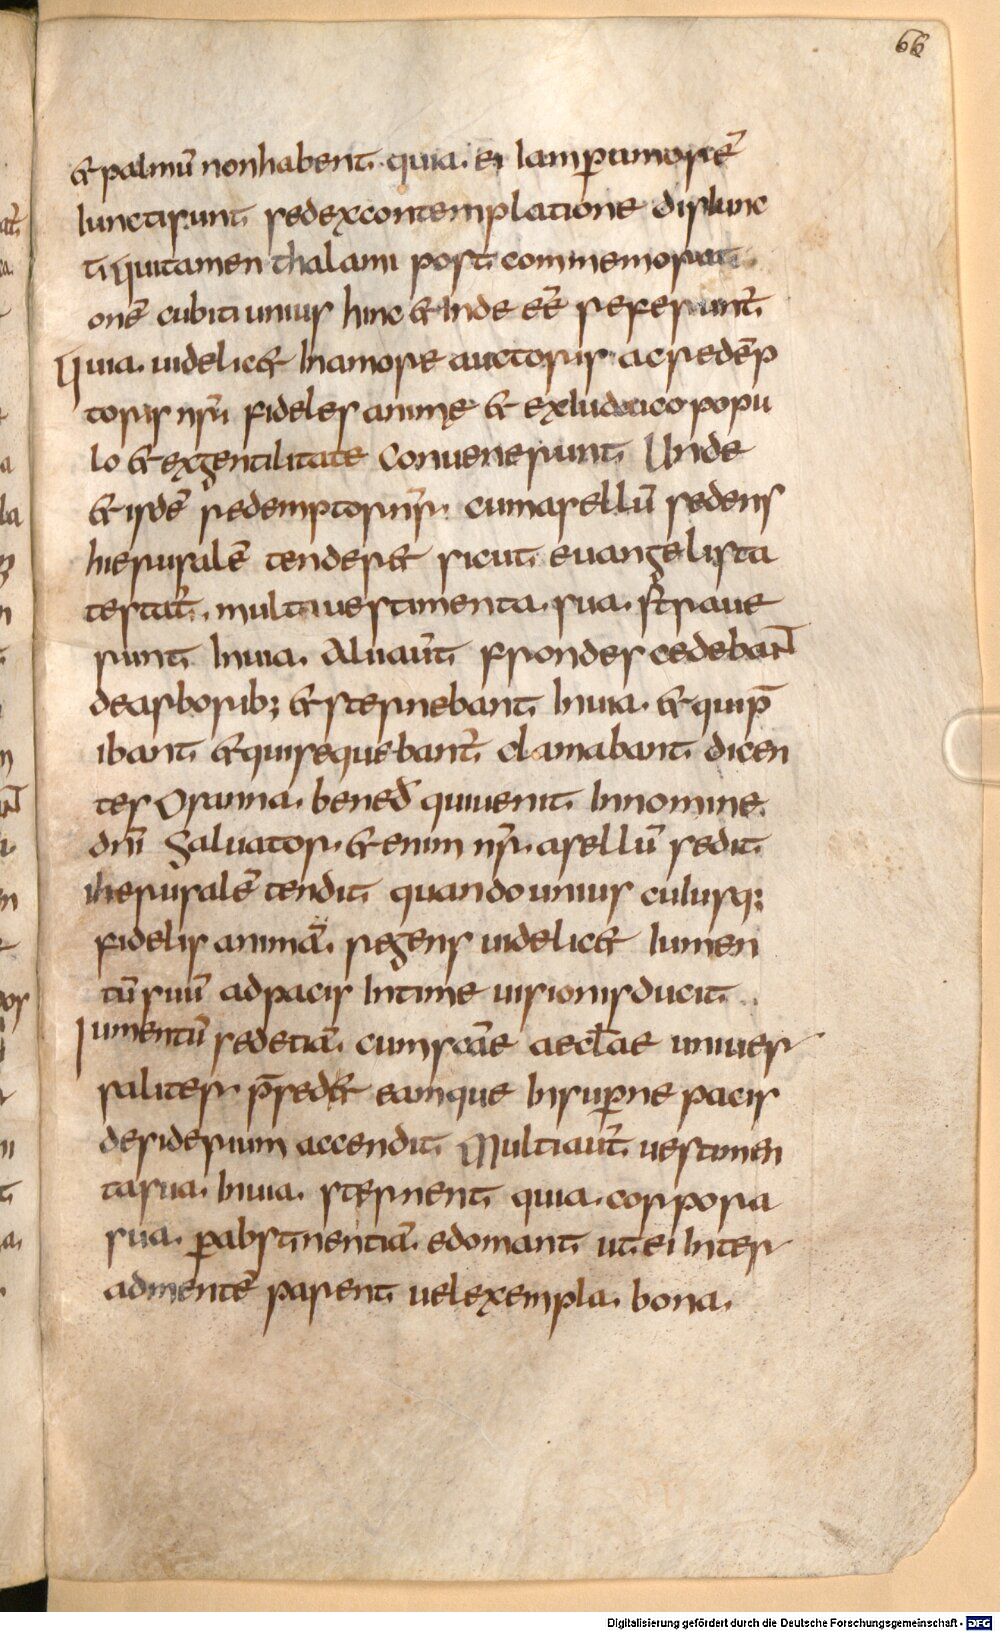 66
& palmū non habent. quia. ei Iam p amorē
Iuncti sunt. sed ex contemplatione disIunc
ti Qui tamen thalami post commemorati
onē cubiti unius hinc & Inde eē referunt̄
Quia. uidelic& In amore auctoris ac redēp
toris nr̄i fideles animę & ex Iudaico popu
lo & ex gentilitate Conuenerunt. Unde
& isdē redemptor nr̄. cum asellū sedens
hierusalē tender& sicut euangelista
testat̄. multi uestimenta. sua. straue
runt. In uia. Alii aut̄ frondes cedebant
de arborib; & sternebant. In uia. & qui p̄
ibant. & qui sequebant̄. clamabant. dicen
tes Osanna. bened̄ qui uenit. In nomine.
dn̄i Saluator. & enim nr̄. asellū sedit.
iherusalē tendit. quando unius cuIusq;
fidelis animā. regens uidelic& Iumen
tū suū ad pacis Intime uisionis ducit.
Iumentū sedetiā. cum sc̄ae aecl̄ae uniuer
saliter p̄sed& eamque In supernę pacis
desiderium accendit. Multi aut̄ uestimen
ta sua. In uia. sternent. quia. corpora
sua. p abstinentiā. edomant. ut ei Iter
ad mentē parent. uel exempla. bona.
Digitalisierung gefördert durch die Deutsche Forschungsgemeinschaft - DFG